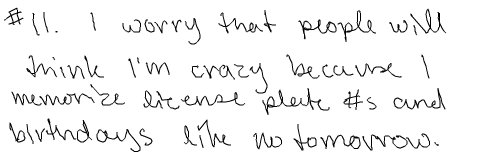 #11. I worry that people will
think I'm crazy because I
memorize license plate #s and
birthdays like no tomorrow.